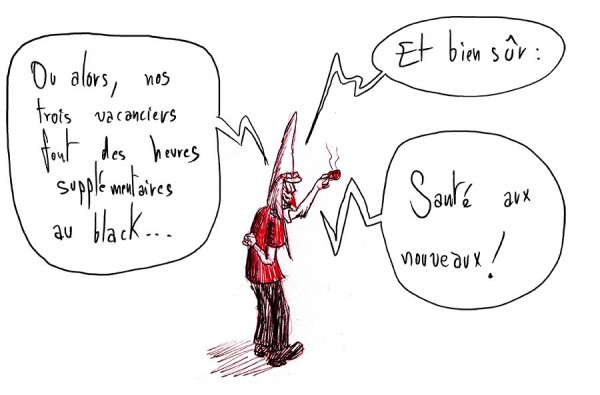 Ou alors, nos
trois vacanciers
font des heures
supplémentaires
au black...
Et bien sûr :
Santé aux
nouveaux !